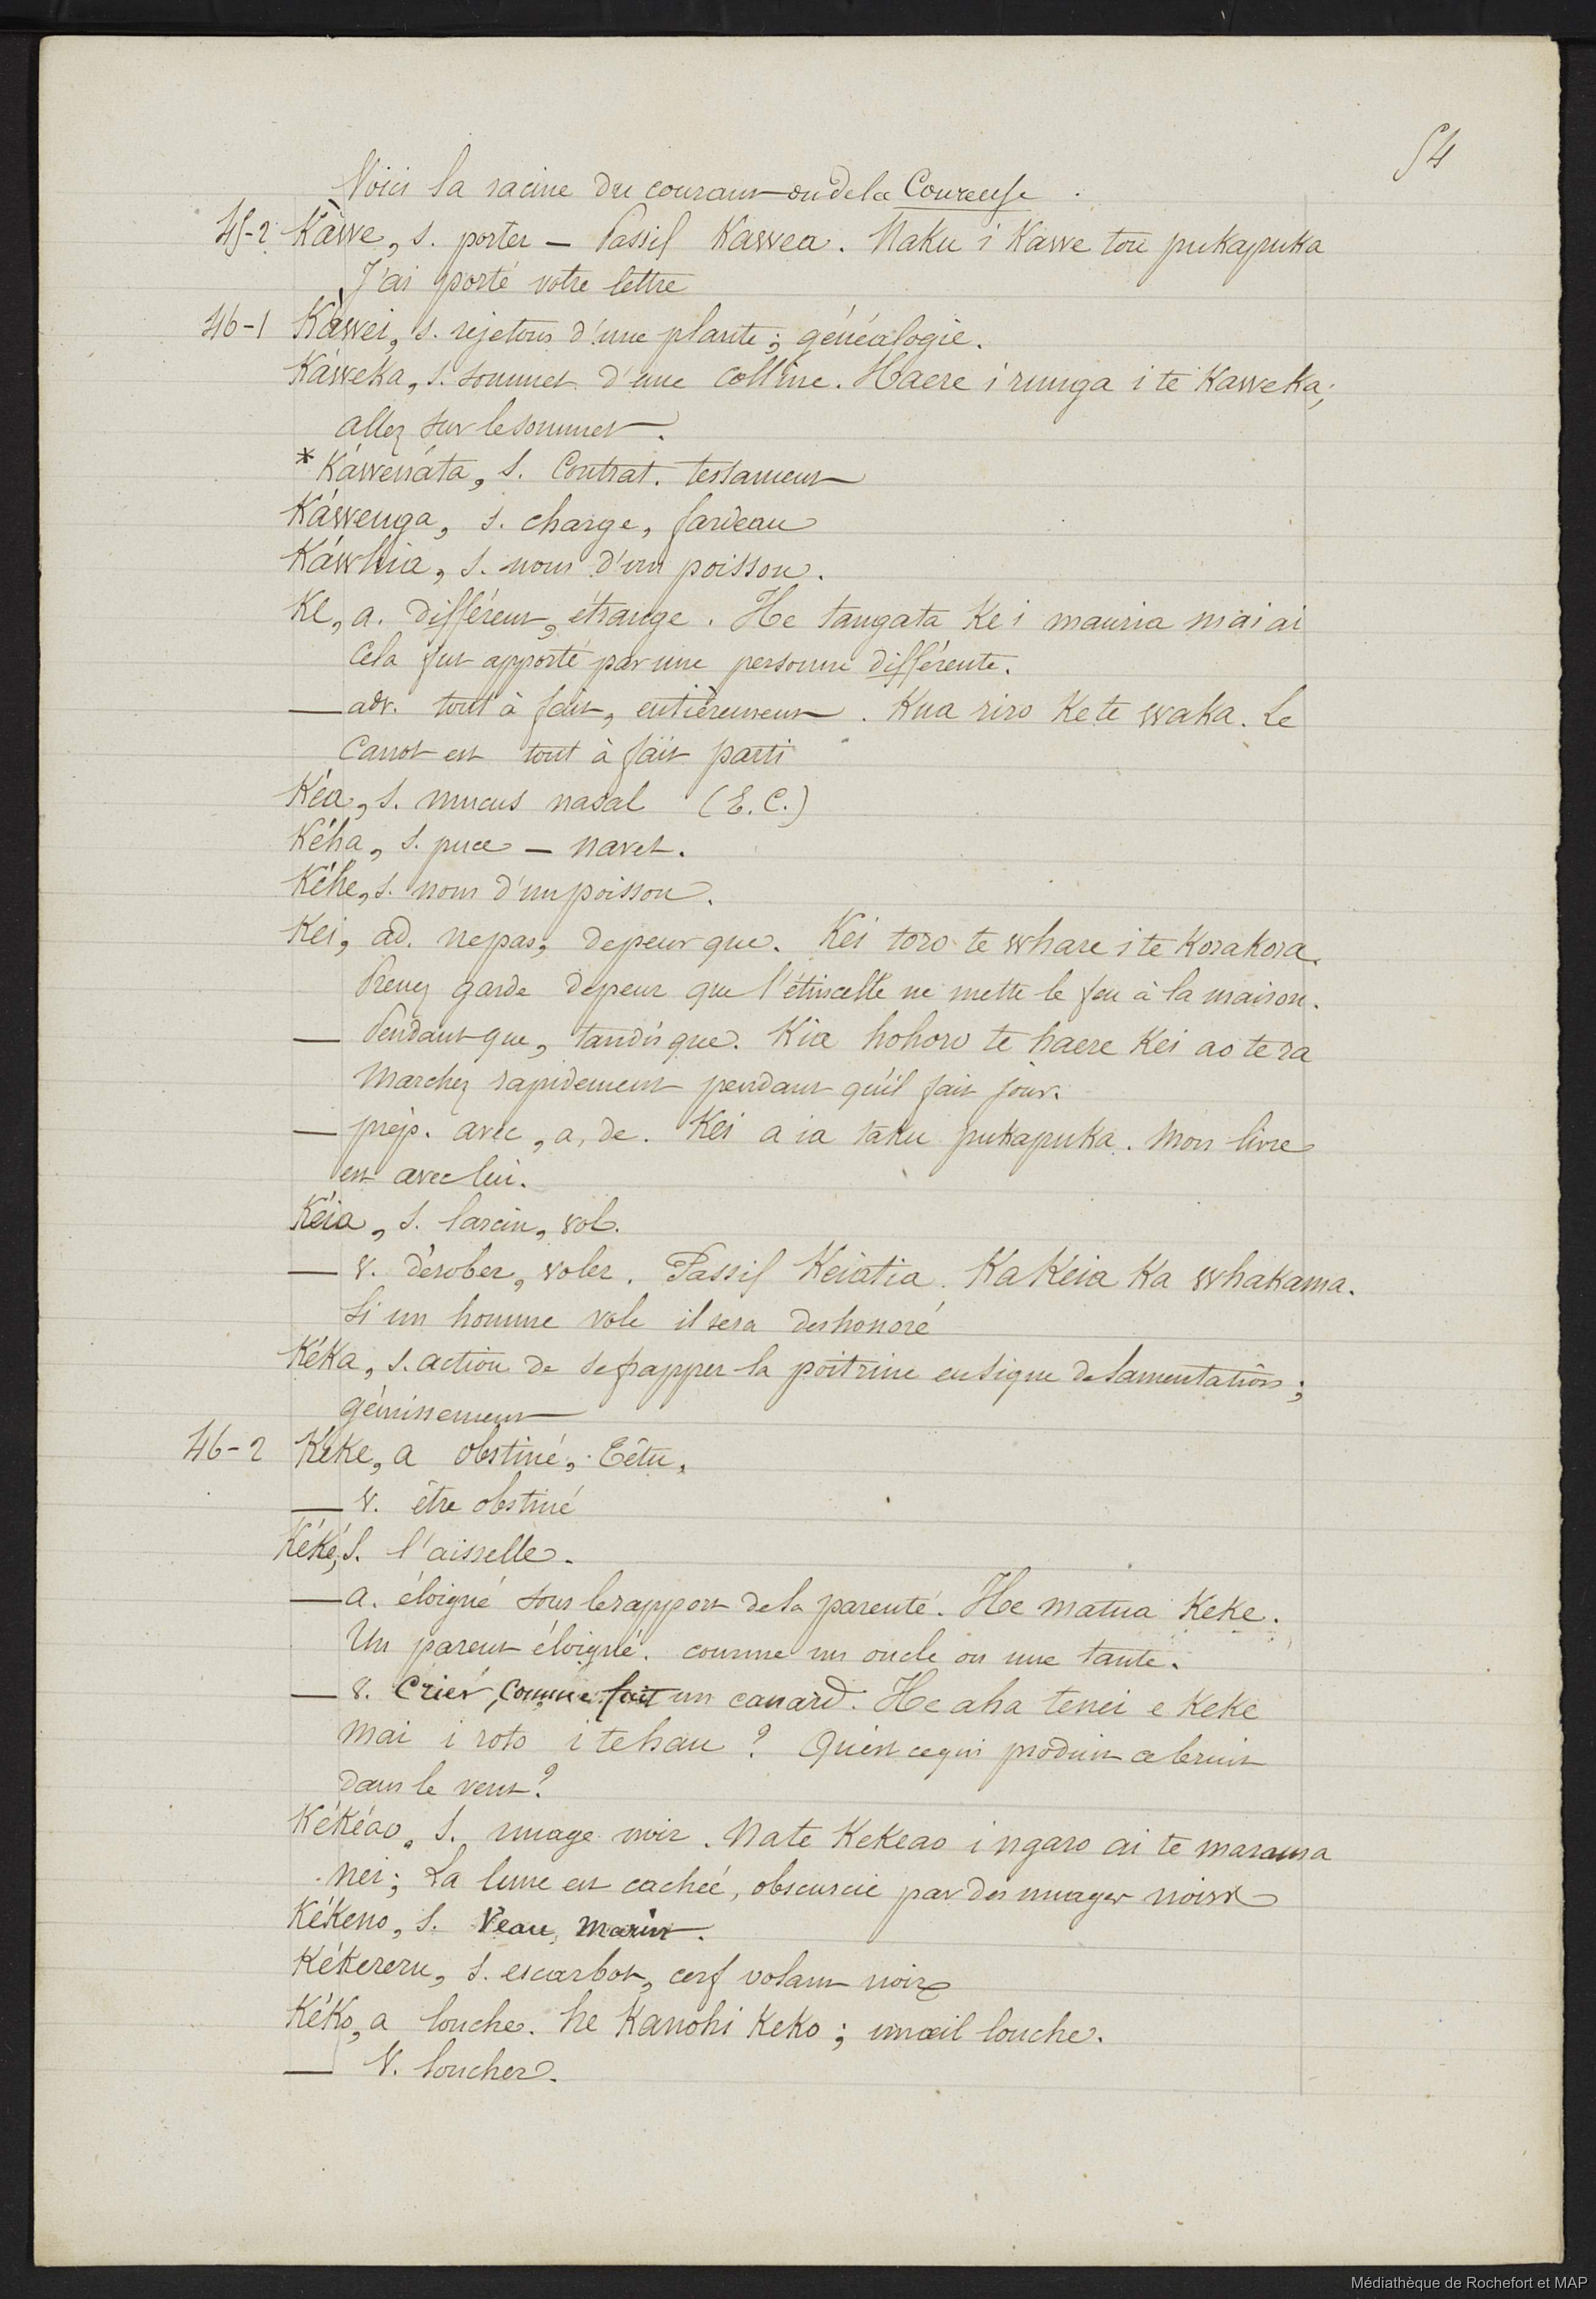 54
Voici la racine du courant ou de la Coureuse.
45-2 Kàwe, s. porter — Passif Kawea. Naku i Kawe tou pukapuka
J'ai porté votre lettre
46-1 Kàwei, s. rejetons d'une plante; généalogie.
Káweka, s. sommet d'une colline. Haere i runga i te Kaweka;
allez sur le sommet.
* Káwenáta, s. Contrat. testament
Káwenga, s. charge, fardeau
Káwhia, s. nom d'un poisson.
Ke, a. différent, étrange. He tangata Ke i mauria mai ai
Cela fut apporté par une personne différente.
— adv. tout à fait, entièrement. Kua riro Ke te waka. Le
Canot est tout à fait parti
Kéa, s. mucus nasal (E. C.)
Kéha, s. puce — navet.
Kéhe, s. nom d'un poisson.
Kei, ad. ne pas, de peur que. Kei toro te whare i te Korakora.
Prenez garde de peur que l'étincelle ne mette le feu à la maison.
— Pendant que, tandis que. Kia hohoro te haere Kei ao te ra
Marchez rapidement pendant qu'il fait jour.
— prép. avec, a, de. Kei a ia taku pukapuka. Mon livre
est avec lui.
Kéia, s. larcin, vol.
— v. dérober, voler. Passif Keiatia. Ka Keia Ka whakama.
Si un homme vole il sera deshonoré
Kéka, s. action de se frapper la poitrine en signe de lamentation;
gémissement
46-2 Kéke, a obstiné, Têtu.
— v. être obstiné
Kéké, s. l'aisselle.
— a. éloigné sous le rapport de la parenté. He matua Keke.
Un parent éloigné. comme un oncle ou une tante.
— v. Crier, Comme fait un canard. He aha tenei e Keke
mai i roto i te hau? Qu'est ce qui produit ce bruit
dans le vent?
Kékéao, s. nuage noir. Na te Kekeao i ngaro ai te marama
nei; La lune est cachée, obscurcie par des nuages noirs
Kékeno, s. Veau, marin.
Kékereru, s. escarbot, cerf volant noir
Kéko, a louche. he Kanohi Keko; un œil louche.
— V. loucher.
Médiathèque de Rochefort et MAP